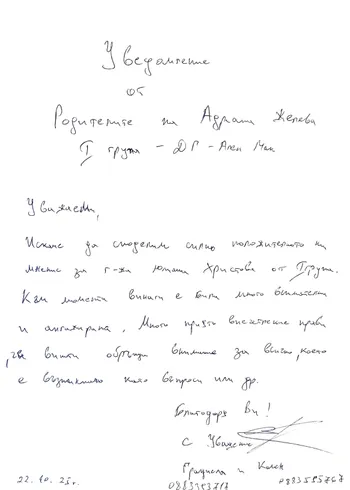 Уведомление
от
Родителите на Адриана Желева
I група - ДГ - Ален Мак
Уважаеми,
Искаме да споделим силно положителното ни
мнение за г-жа Юлиана Христова от I група.
Към момента винаги е била много внимателна
и ангажирана, Много приятно впечатление прави
, че винаги обръща внимание за всичко, което
е възникнало като въпроси или др.
Благодаря Ви!
С Уважение
и
22.10.25г.